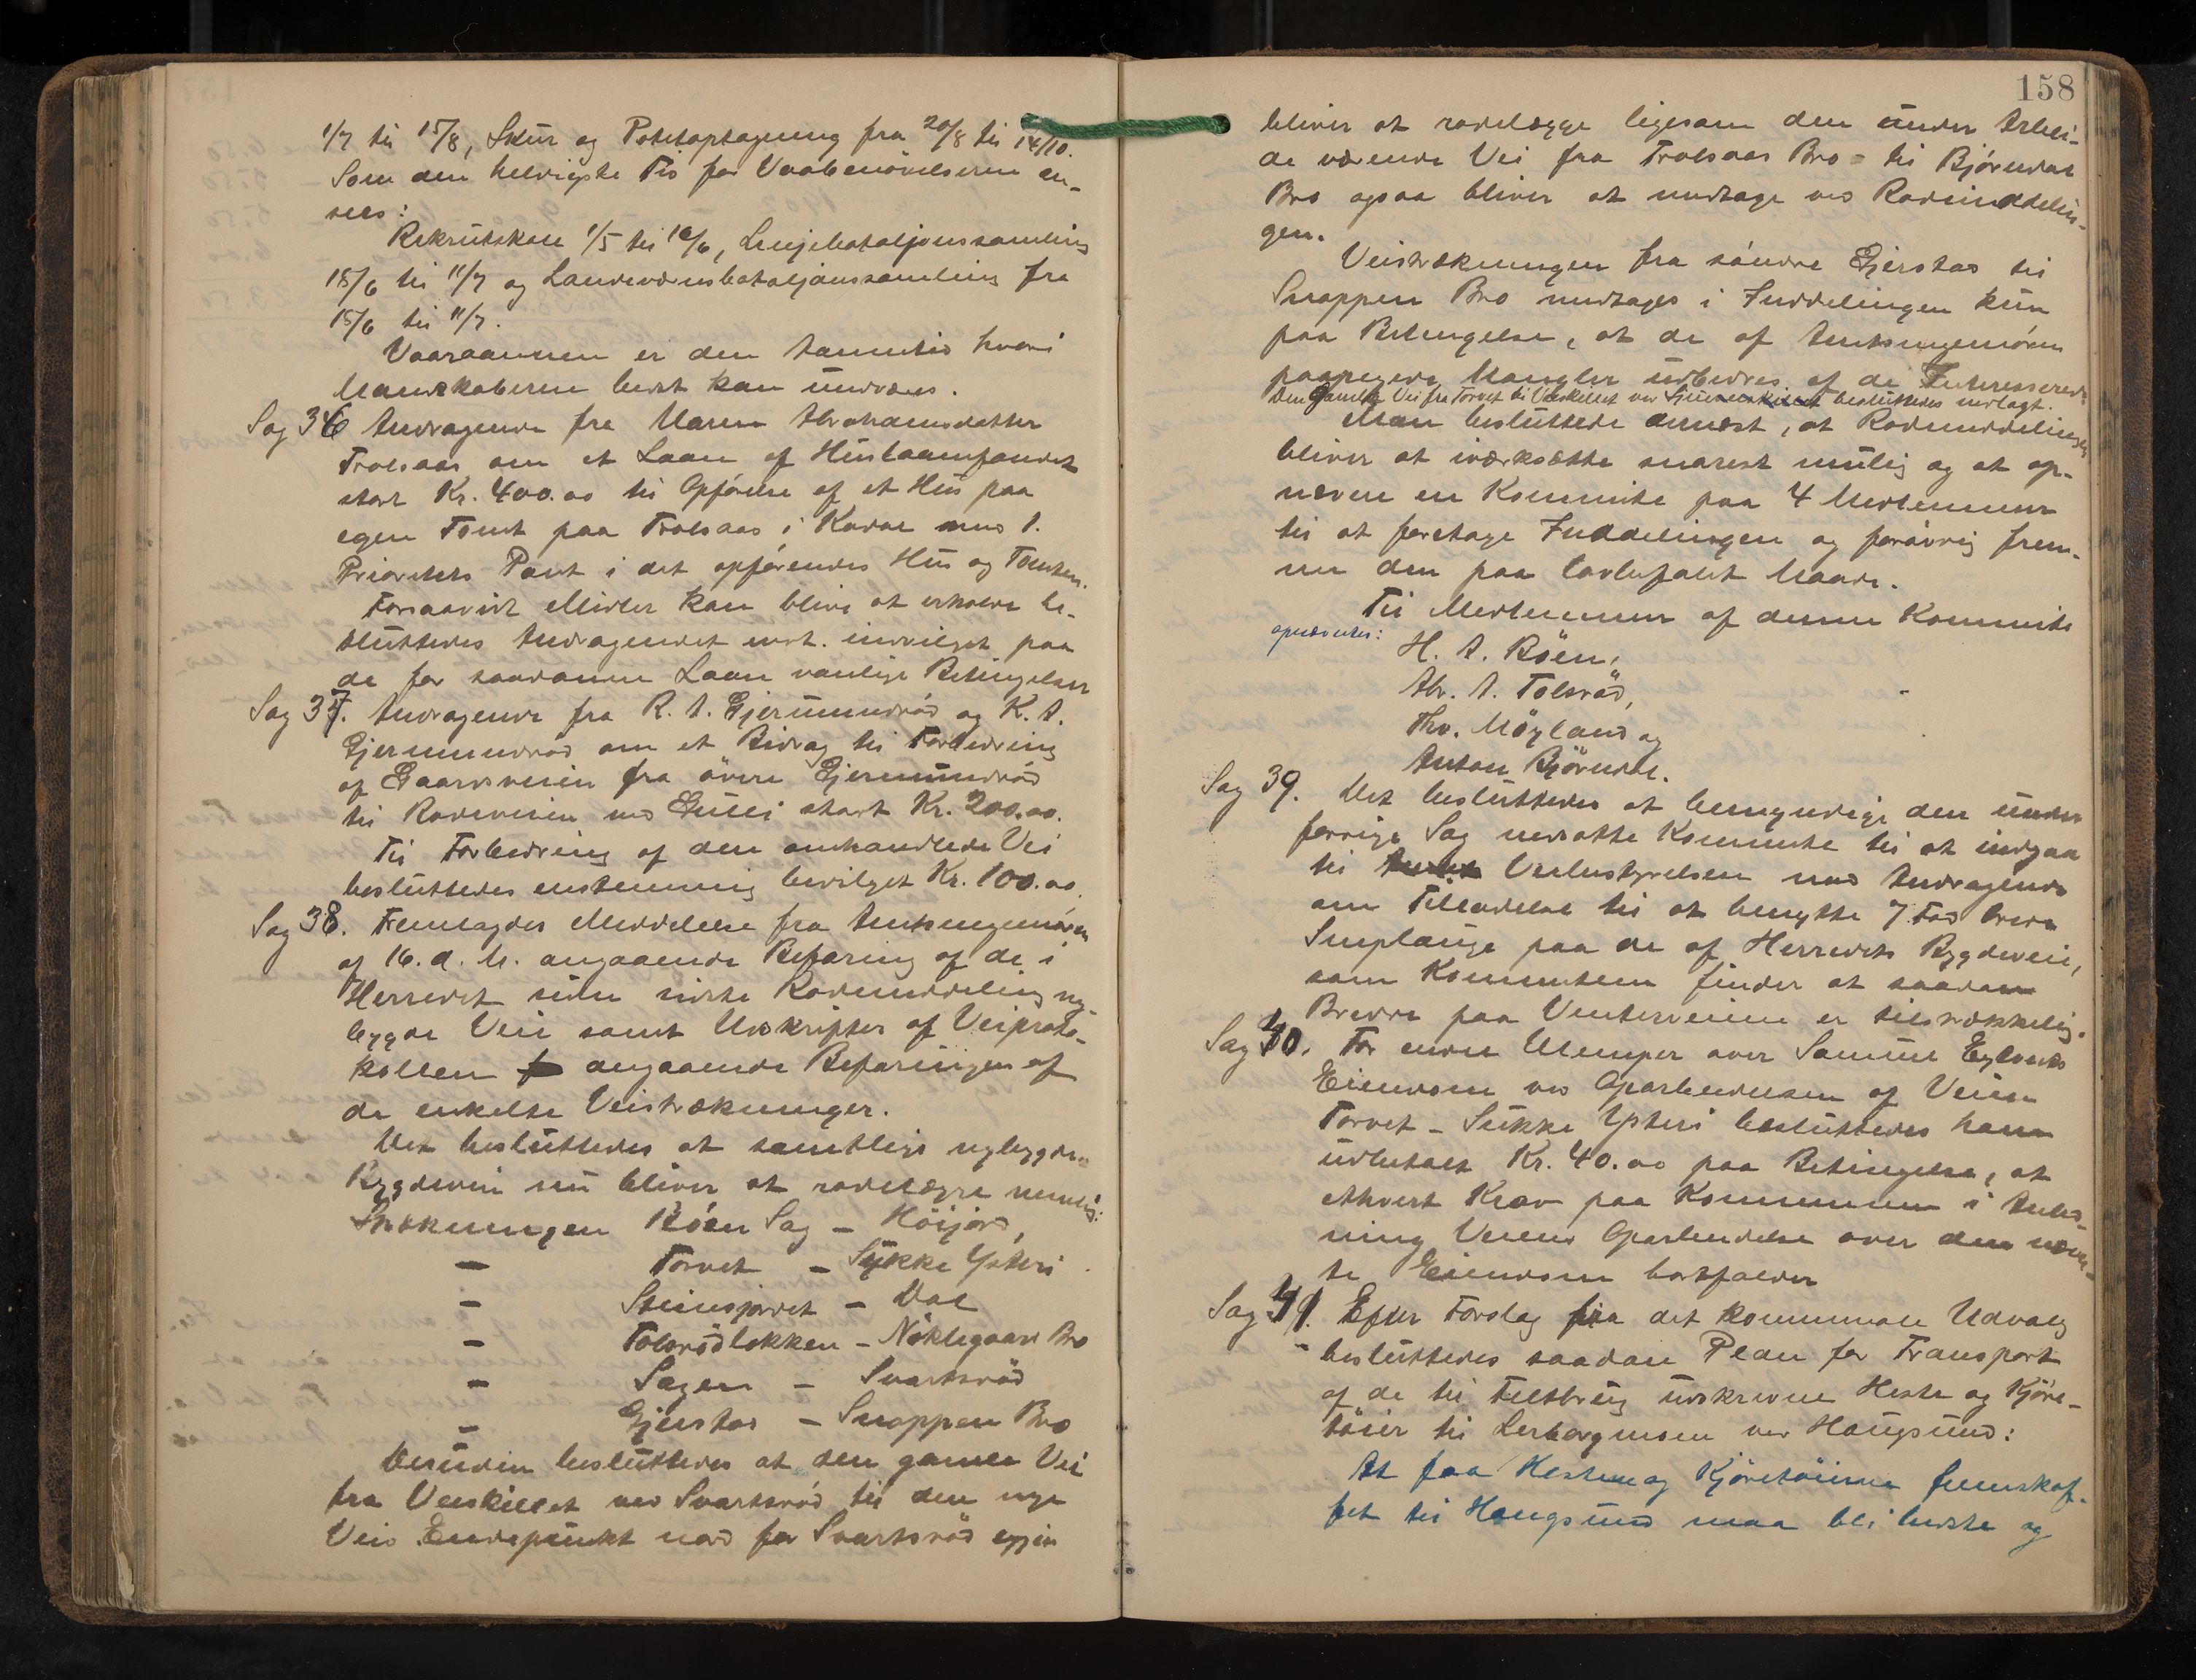 1/7 til 15/8, Skur og Potetoptagning fra 20/8 til 14/10.
Som den heldigste Tid for Vaabenøvelserne an-
sees:
Rekrutskole 1/5 til 16/6, Linjebataljonssamling
18/6 til 11/7 og Landeværnsbataljonssamling fra
18/6 til 11/7.
Vaaraannen er den Aannetid hvori
Mandskaberne bedst kan undværes.
Sag 36 Andragende fra Maren Abrahamsdatter
Trolsaas om et Laan af Huslaanfondet
stort Kr. 400.00 til Opførelse af et Hus paa
egen Tomt paa Trolsaas i Kodal mod 1.
Prioritets Pant i det opførendes Hus og Tomten.
Forsaavidt Midler kan blive at erholde be-
sluttedes Andragendet enst. indvilget paa
de for saadanne Laan vanlige Betingelser
Sag 37. Andragende fra R. A. Gjermundrød og K. A.
Gjermundrød om et Bidrag til Forbedring
af Gaardsveien fra övre Gjermundrød
til Rodeveien ved Gulli stort Kr. 200.00.
Til Forbedring af den omhandlede Vei
besluttedes enstemmig bevilget Kr. 100.00.
Sag 38. Fremlagdes Meddelelse fra Amtsingeniøren
af 16. d. M. angaaende Befaring af de i
Herredet siden sidste Rodeinddeling ny-
byggde Veie samt Udskrifter af Veiproto-
kollen angaaende Befaringen af
de enkelte Veistrækninger.
Det besluttedes at samtlige nybyggde
Bygdeveie nu bliver at rodelægge nemlig:
Strækningen Röen Sag - Höijord,
— Torvet - Sukke Ysteri
— Steinsjordet - Dal
— Tolsrødløkken - Nøklegaard Bro
— Sagen - Svartsröd
— Gjerstad - Snappen Bro
Desuden besluttedes at den gamle Vei
fra Veiskillet ved Svartsröd til den nye
Veis Endepunkt nord for Svartsröd igjen
158
bliver at rodelægge ligesom den under Arbei-
de værende Vei fra Trolsaas Bro til Bjørndal
Bro ogsaa bliver at medtage ved Rodeinddelin-
gen.
Veistrækningen fra søndre Gjerstad til
Snappen Bro medtages i Inddelingen kun
paa Betingelse, at de af Amtsingeniøren
paapegede Mangler udbedres af de Interesserede
Den gamle Vei fra Torvet til Veiskillet ved besluttedes nedlagt.
Man besluttede dernæst, at Rodeinddelingen
bliver at iværksætte snarest mulig og at op-
nævne en Kommite paa 4 Medlemmer
til at foretage Inddelingen og forøvrig frem-
me den paa lovbefalet Maade.
Til Medlemmer af denne Kommite
opnævntes:
H. A. Röen,
Abr. A. Tolsröd,
Thv. Möyland og
Anton Björndal.
Sag 39. Det besluttedes at bemyndige den under
forrige Sag nedsatte Kommite til at indgaa
til Veibestyrelsen med Andragende
om Tilladelse til at benytte 7 Fod brede
Sneplauge paa de af Herredets Bygdeveie,
som Kommiteen finder at saadan
Bredde paa Vinterveiene er tilstrækkelig.
Sag 40. For endel Ulemper over Samuel Eglands
Eiendom ved Oparbeidelsen af Veien
Torvet - Sukke Ysteri besluttedes ham
udbetalt Kr. 40.00 paa Betingelse, at
ethvert Krav paa Kommunen i Anled-
ning Veiens Oparbeidelse over den nævn-
te Eiendom bortfalder
Sag 41. Efter Forslag fra det kommunale Udvalg
besluttedes saadan Plan for Transport
af de til Feltbrug udskrevne Heste og Kjøre-
töier til Lerbergmoen ved Hougsund:
At faa Hestene og Kjöretöierne fremskaf-
fet til Hougsund maa bli bedste og